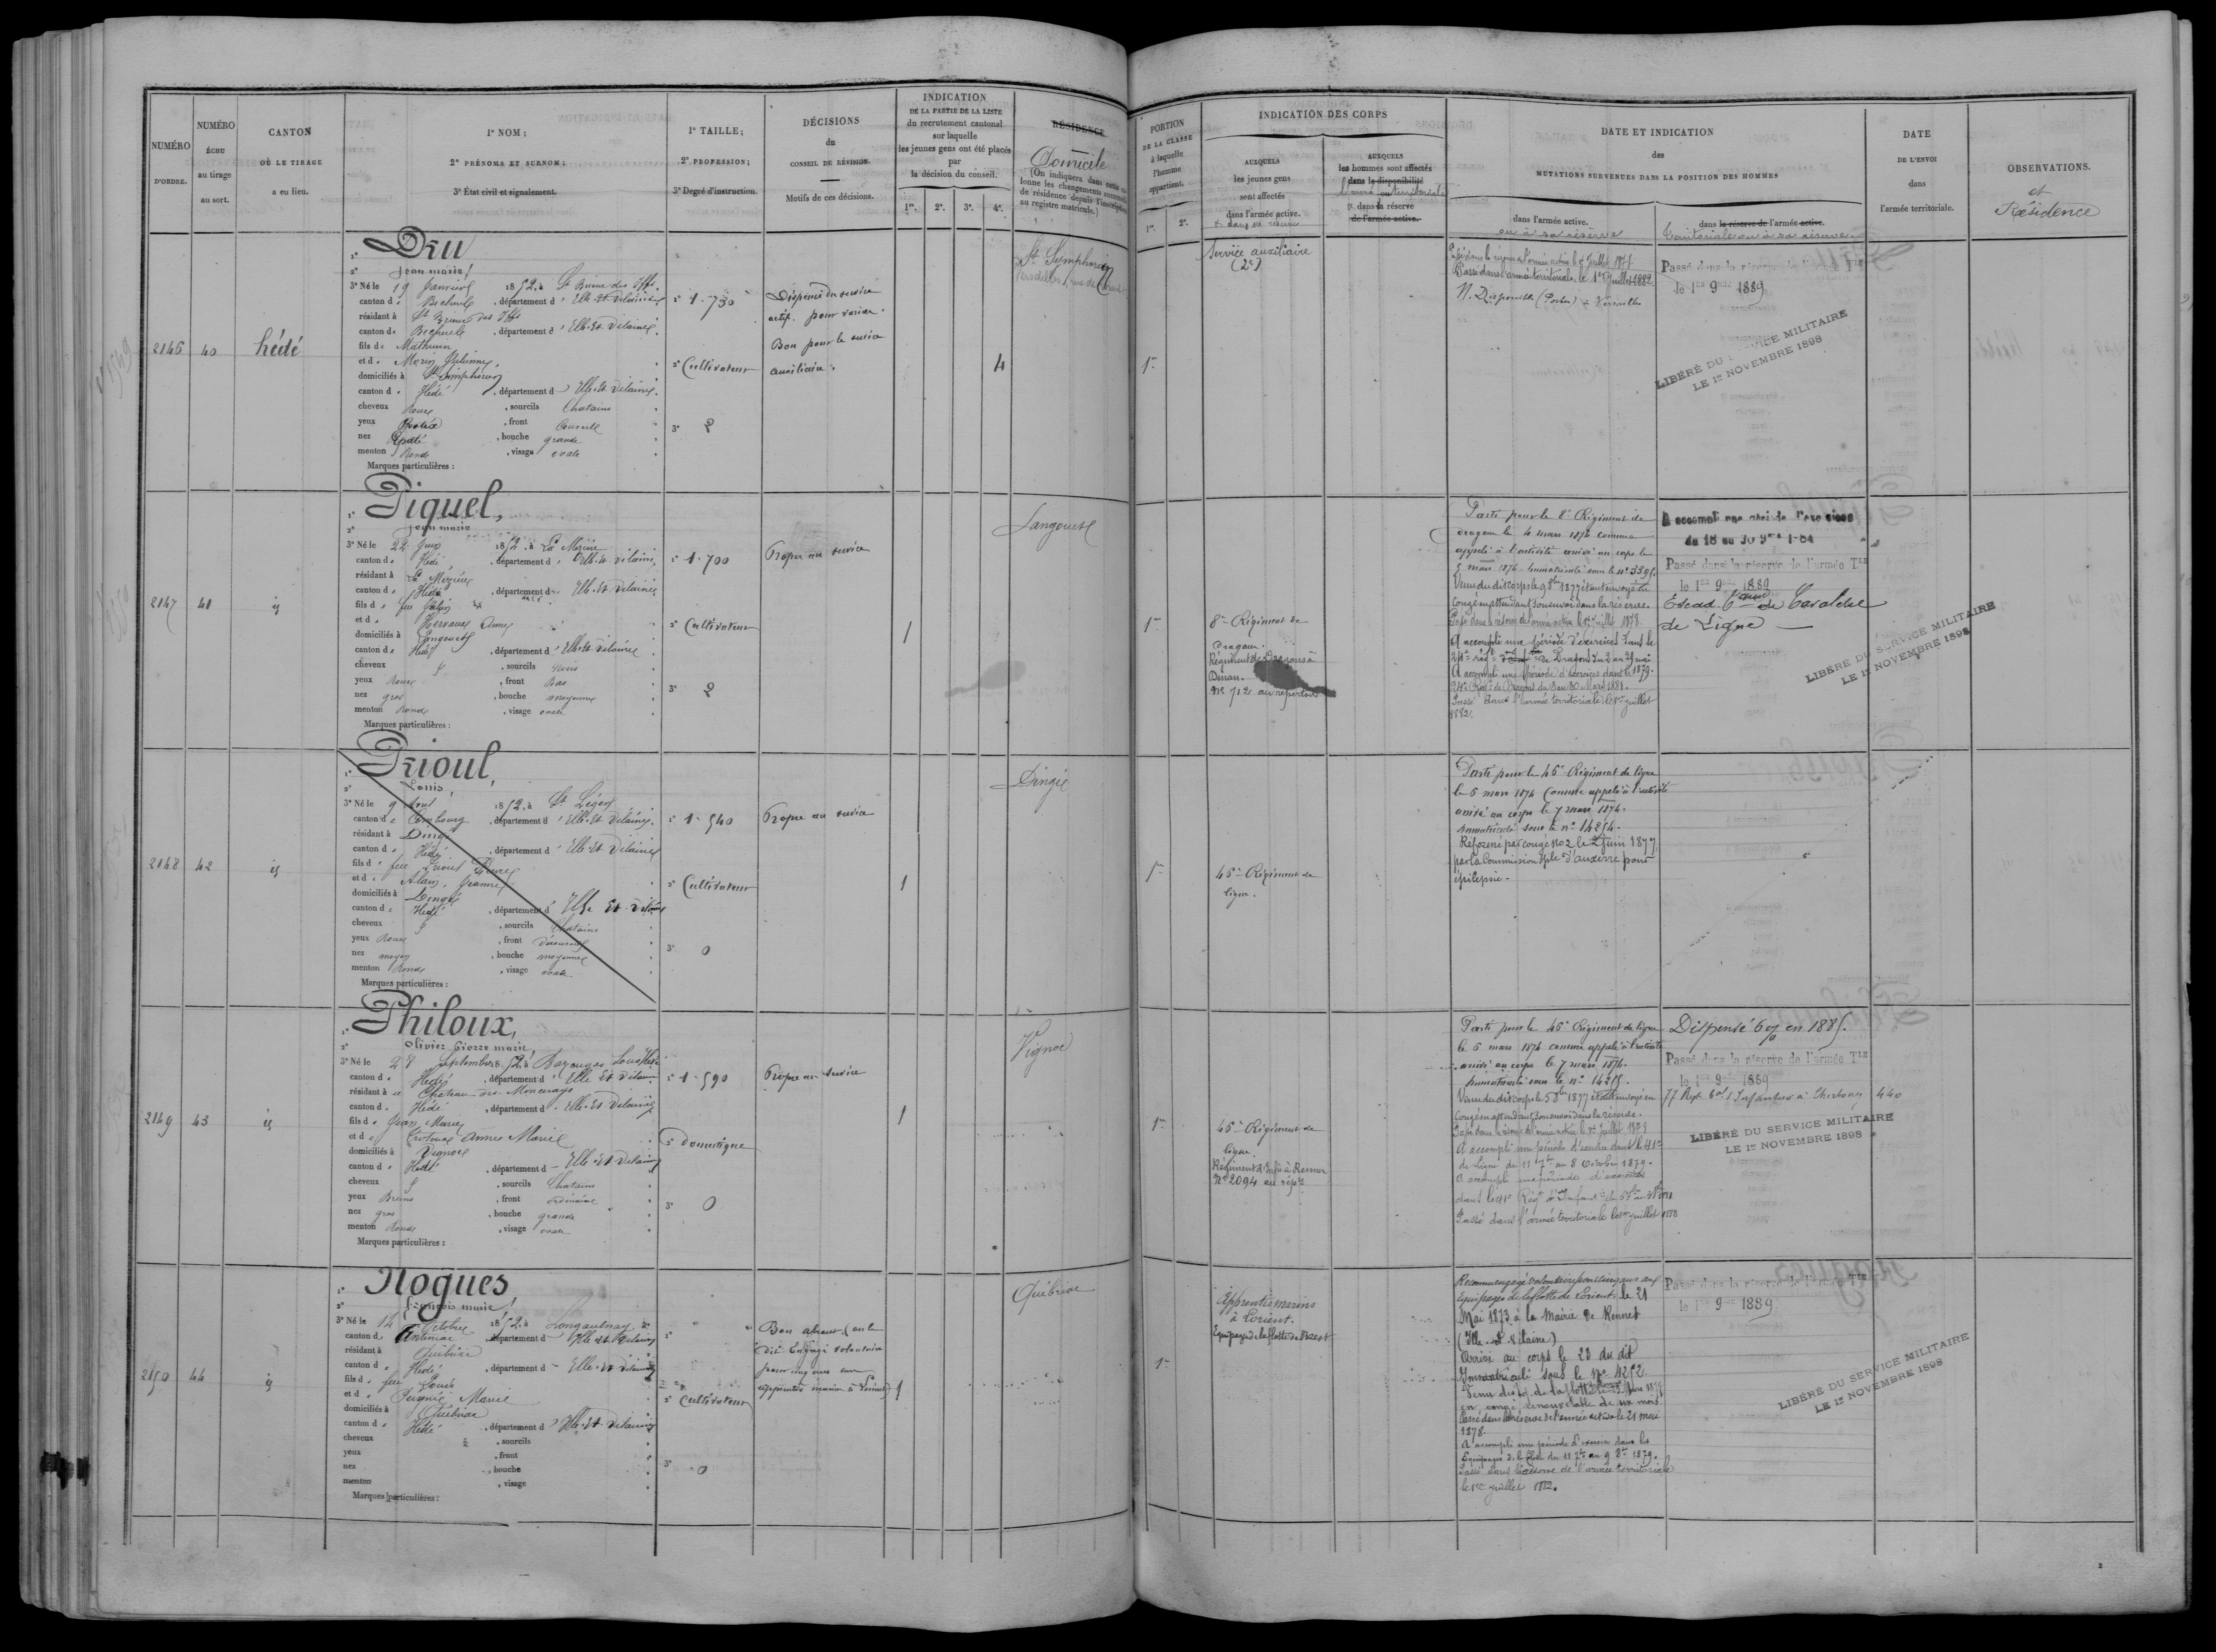 NUMÉRO
D'ORDRE.
NUMÉRO
échu
au tirage
au sort.
CANTON
OÙ LE TIRAGE
a eu lieu.
1° NOM ;
2° PRÉNOMS ET SURNOM ;
3° État civil et signalement.
1° TAILLE ;
2° PROFESSION ;
3° Degré d'instruction.
DÉCISIONS
du
CONSEIL DE RÉVISION.
Motifs de ces décisions.
INDICATION
DE LA PARTIE DE LA LISTE
du recrutement cantonal
sur laquelle
les jeunes gens ont été placés
par
la décision du conseil.
1re. 2e. 3e. 4e.
RÉSIDENCE
Domicile
(On indiquera dans cette co-
lonne les changements successifs
de résidence depuis l'inscription
au registre matricule.)
PORTION
DE LA CLASSE
à laquelle
l'homme
appartient.
1re. 2e.
INDICATION DES CORPS
AUXQUELS
les jeunes gens
sont affectés
dans l'armée active.
& dans sa réserve
AUXQUELS
les hommes sont affectés
dans la disponibilité
l'armée territoriale
& dans la réserve
de l'armée active.
DATE ET INDICATION
des
MUTATIONS SURVENUES DANS LA POSITION DES HOMMES
dans l'armée active.
ou à sa réserve
dans la réserve de l'armée active.
territoriale ou à sa réserve
DATE
DE L'ENVOI
dans
l'armée territoriale.
OBSERVATIONS.
et
Résidence
2146
40
hédé
1° Dru
2° Jean marie
3° Né le 19 Janvier 1852, à St Brieuc des Iffs
canton de Bécherel, département d'Ille-Et-Vilaine
résidant à St Brieuc des Iffs
canton de Bécherel, département d'Ille-Et-Vilaine
fils de Mathurin
et de Morin Julienne
domiciliés à St Simphorien
canton d Hédé, département d'Ille-Et-Vilaine
cheveux Roux, sourcils Chatains
yeux, front Couvert
nez Epaté, bouche grande
menton Rond, visage ovale
Marques particulières :
1° 1.730
2° Cultivateur
3° 2
Dispensé du service
actif pour varices.
Bon pour le service
auxiliaire.
4
St Symphorien
1re
Service auxiliaire
(2e)
Passé dans la réserve de l'armée active le 1er Juillet 1878
Passé dans l'armée territoriale, le 1er Juillet 1882
N. Disponible (Postes) à Versailles
Passé dans la réserve de l'armée Tle
le 1er 9bre 1889
LIBÉRÉ DU SERVICE MILITAIRE
LE 1er NOVEMBRE 1898
2147
41
id
1° Piquel,
2° Jean marie
3° Né le 22 Juin 1852, à La Mézière
canton d Hédé, département d'Ille-Et-Vilaine
résidant à La Mézière
canton d Hédé, département d Ille-Et-Vilaine
fils d feu Julien
et d Hervault Anne
domiciliés à Langouet
canton de Hédé, département d'Ille-Et-Vilaine
cheveux, sourcils Noirs
yeux Roux, front Bas
nez gros, bouche moyenne
menton Rond, visage ovale
Marques particulières :
1° 1.700
2° Cultivateur
3° 2
Propre au service
1
Langouet
1re
8e Régiment de
Dragons.
Régiment de Dragons à
Dinan.
No 712 au répertoire
Parti pour le 8e Régiment de
dragons le 4 mars 1874 comme
appelé à l'activité arrivé au corps le
5 mars 1874. Immatriculé sous le no 3395.
Venu du dit corps le 9 8bre 1877 étant envoyé en
congé en attendant son envoi dans la réserve.
Passé dans la réserve de l'armée active le 1er juillet 1878.
A accompli une période d'exercices dans le
24e régt de Dragons du 2 au 29 mai
1879.
A accompli une période d'exercices dans le
24e Régt de Dragons du 3 au 30 Mars 1881.
Passé dans l'armée territoriale le 1er juillet
1882.
A accompli une période d'exercices
du 18 au 30 9bre 1884
Passé dans la réserve de l'armée Tle
le 1er 9bre 1889
Escad. de Cavalerie
de Ligne
LIBÉRÉ DU SERVICE MILITAIRE
LE 1er NOVEMBRE 1898
2148
42
id
1° Prioul,
2° Louis,
3° Né le 9 Aout 1852, à St Léger
canton de Combourg, département d'Ille-Et-Vilaine
résidant à Dingé
canton d Hédé, département d'Ille-Et-Vilaine
fils d feu Prioul Pierre
et d Alain, Jeanne
domiciliés à Dingé
canton de Hédé, département d'Ille-Et-Vilaine
cheveux, sourcils Chatains
yeux Roux, front découvert
nez moyen, bouche moyenne
menton Rond, visage ovale
Marques particulières :
1° 1.540
2° Cultivateur
3° 0
Propre au service
1
Dingé
1re
46e Régiment de
ligne.
Parti pour le 46e Régiment de ligne
le 6 mars 1874 comme appelé à l'activité
arrivé au corps le 7 mars 1874.
Immatriculé sous le no 14254.
Réformé par congé no 2 le 2 Juin 1877
par la Commission Sple d'Auxerre pour
épilepsie.
2149
43
id
1° Philoux,
2° Olivier Pierre marie,
3° Né le 28 Septembre 1852, à Bazouges Sous Hédé
canton d Hédé, département d'Ille-Et-Vilaine
résidant à Chateau des
canton d Hédé, département d'Ille-Et-Vilaine
fils d Jean Marie
et d Anne Marie
domiciliés à Vignoc
canton de Hédé, département d Ille-Et-Vilaine
cheveux, sourcils Chatains
yeux Bruns, front ordinaire
nez gros, bouche grande
menton Rond, visage ovale
Marques particulières :
1° 1.590
2° Domestique
3° 0
Propre au service
1
Vignoc
1re
46e Régiment de
ligne.
Régiment d'Infie à Rennes
No 2094 au répre
Parti pour le 46e Régiment de ligne
le 6 mars 1874 comme appelé à l'activité
arrivé au corps le 7 mars 1874.
Immatriculé sous le no 14255.
Venu du dit corps le 5 8bre 1877 étant envoyé en
congé en attendant son envoi dans la réserve.
Passé dans la réserve de l'armée active le 1er Juillet 1878
A accompli une période d'exercices dans le 41e
de Ligne du 11 7bre au 8 Octobre 1879.
A accompli une période d'exercices
dans le 41e Régt d'Infantie
Passé dans l'armée territoriale le 1er juillet
Dispensé 6 % en 1885.
Passé dans la réserve de l'armée Tle
le 1er 9bre 1889
77 Regt d'Infanterie à Cherbourg
440
LIBÉRÉ DU SERVICE MILITAIRE
LE 1er NOVEMBRE 1898
2150
44
id
1° Nogues
2° François marie
3° Né le 14 Octobre 1852, à Longaulnay
canton de, département d Ille-Et-Vilaine
résidant à Québriac
canton d Hédé, département d Ille-Et-Vilaine
fils d feu Louis
et d Marie
domiciliés à Québriac
canton d Hédé, département d'Ille-Et-Vilaine
cheveux, sourcils
yeux, front
nez, bouche
menton, visage
Marques particulières :
1° "
2° Cultivateur
3° 0
Bon absent (on le
dit Engagé volontaire
pour cinq ans aux
apprentis marins à Lorient)
1
Québriac
1re
Apprentis marins
à Lorient.
Equipages de la flotte de Brest
Reconnu engagé volontaire pour cinq ans aux
Equipages de la flotte de Lorient, le 21
Mai 1873 à la Mairie de Rennes
(Ille-et-Vilaine)
Arrivé au corps le 23 du dit
Immatriculé sous le No 4252.
en congé renouvelable de six mois
Passé dans la réserve de l'armée active le 21 mai
1878.
A accompli une période d'exercice dans les
Equipages de la flotte du 11 7bre au 9 8bre 1879.
Passé dans la réserve de l'armée territoriale
le 1er juillet 1882.
Passé dans la réserve de l'armée Tle
le 1er 9bre 1889
LIBÉRÉ DU SERVICE MILITAIRE
LE 1er NOVEMBRE 1898